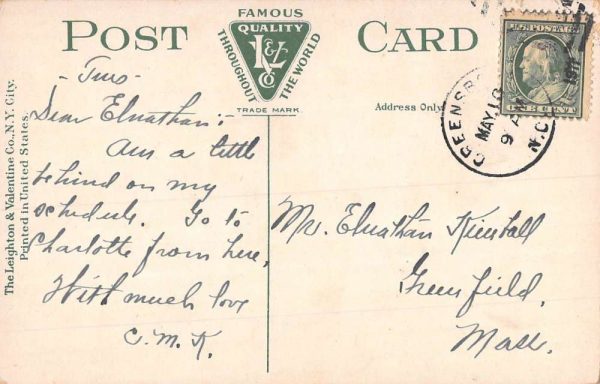 POST CARD
FAMOUS
QUALITY
THROUGHOUT
THE WORLD
L&V
Co
TRADE MARK
Address Only
The Leighton & Valentine Co., N.Y. City.
Printed in United States.
U.S. POSTAGE
ONE CENT
GREENSBO
MAY 18
9 AM
N.C.
- Tues -
Dear Elnathan:
Am a little
behind on my
schedule. Go to
Charlotte from here.
With much love
C.M.K.
Mr. Elnathan Kimball
Greenfield,
Mass.